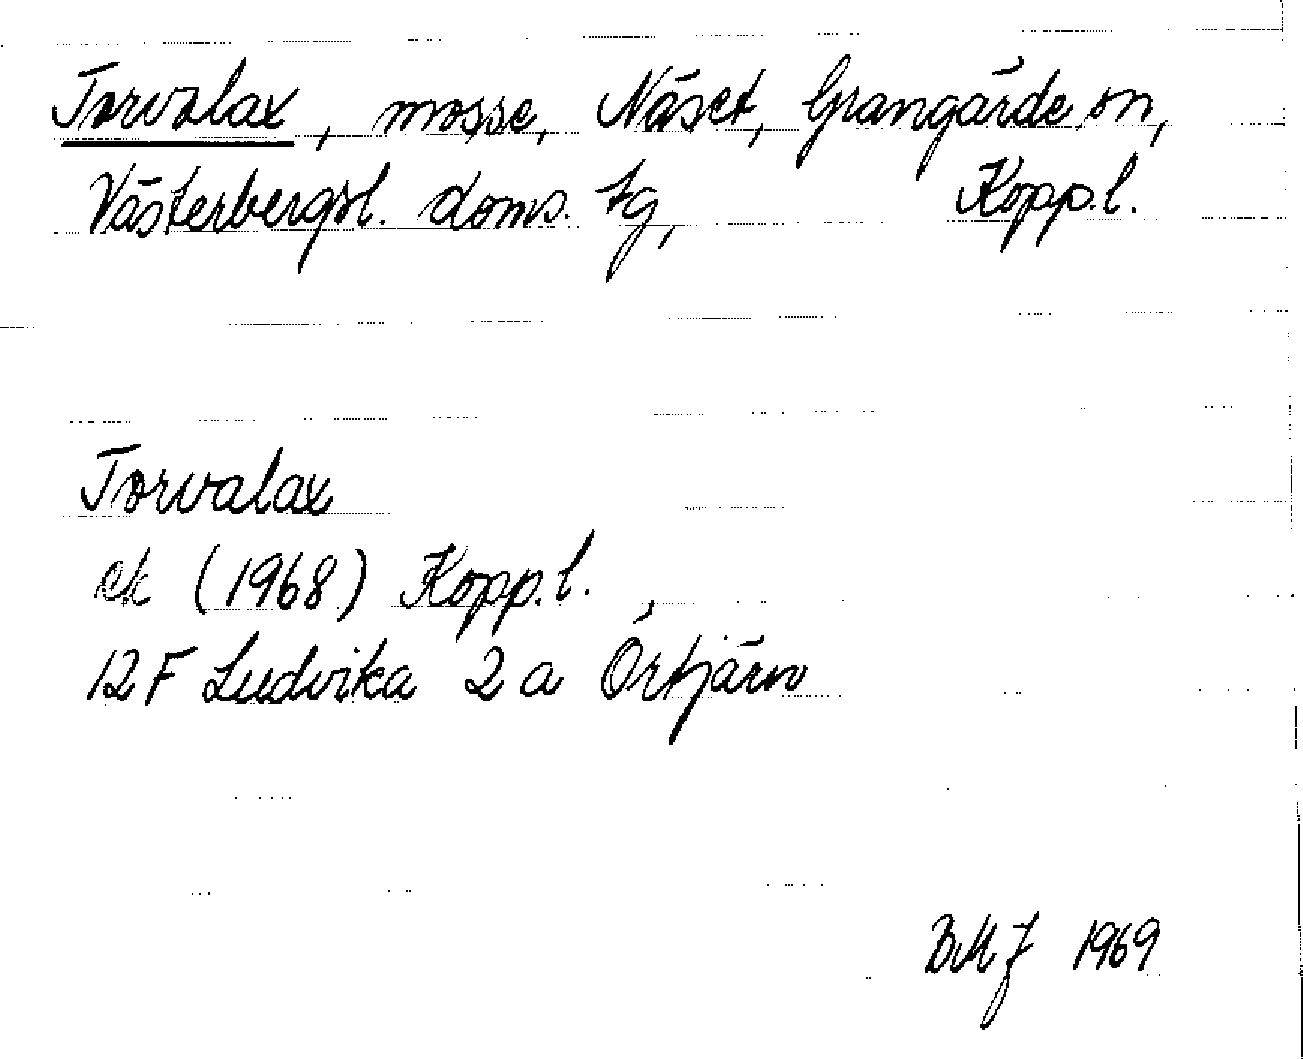 Torvalax, mosse, Näset, Grangärde sn,
Västerbergsl. doms. tg, Kopp.l.
Torvalax
ek (1968) Kopp.l.
12F Ludvika 2a Örtjärn
BMJ 1969